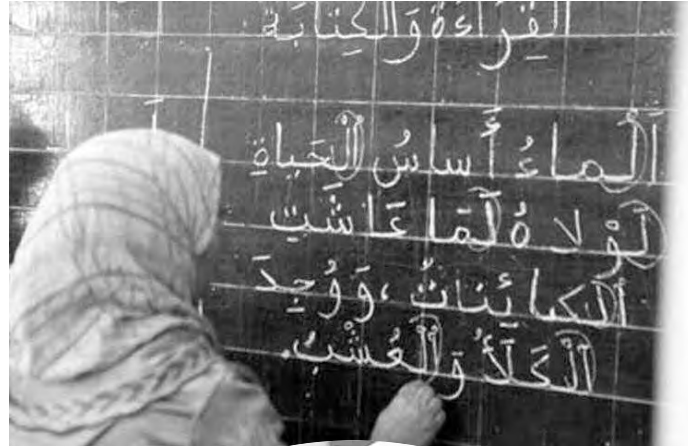 القِرَاءَةُ وَالكِتَابَةُ
أَلْماءُ أَساسُ الْحَياةِ
لَوْلاهُ لَمَا عَاشَتِ
أَلْكائِناتُ، وَوُجِدَ
أَلْكَلَأُ وَالْعُشْبُ.